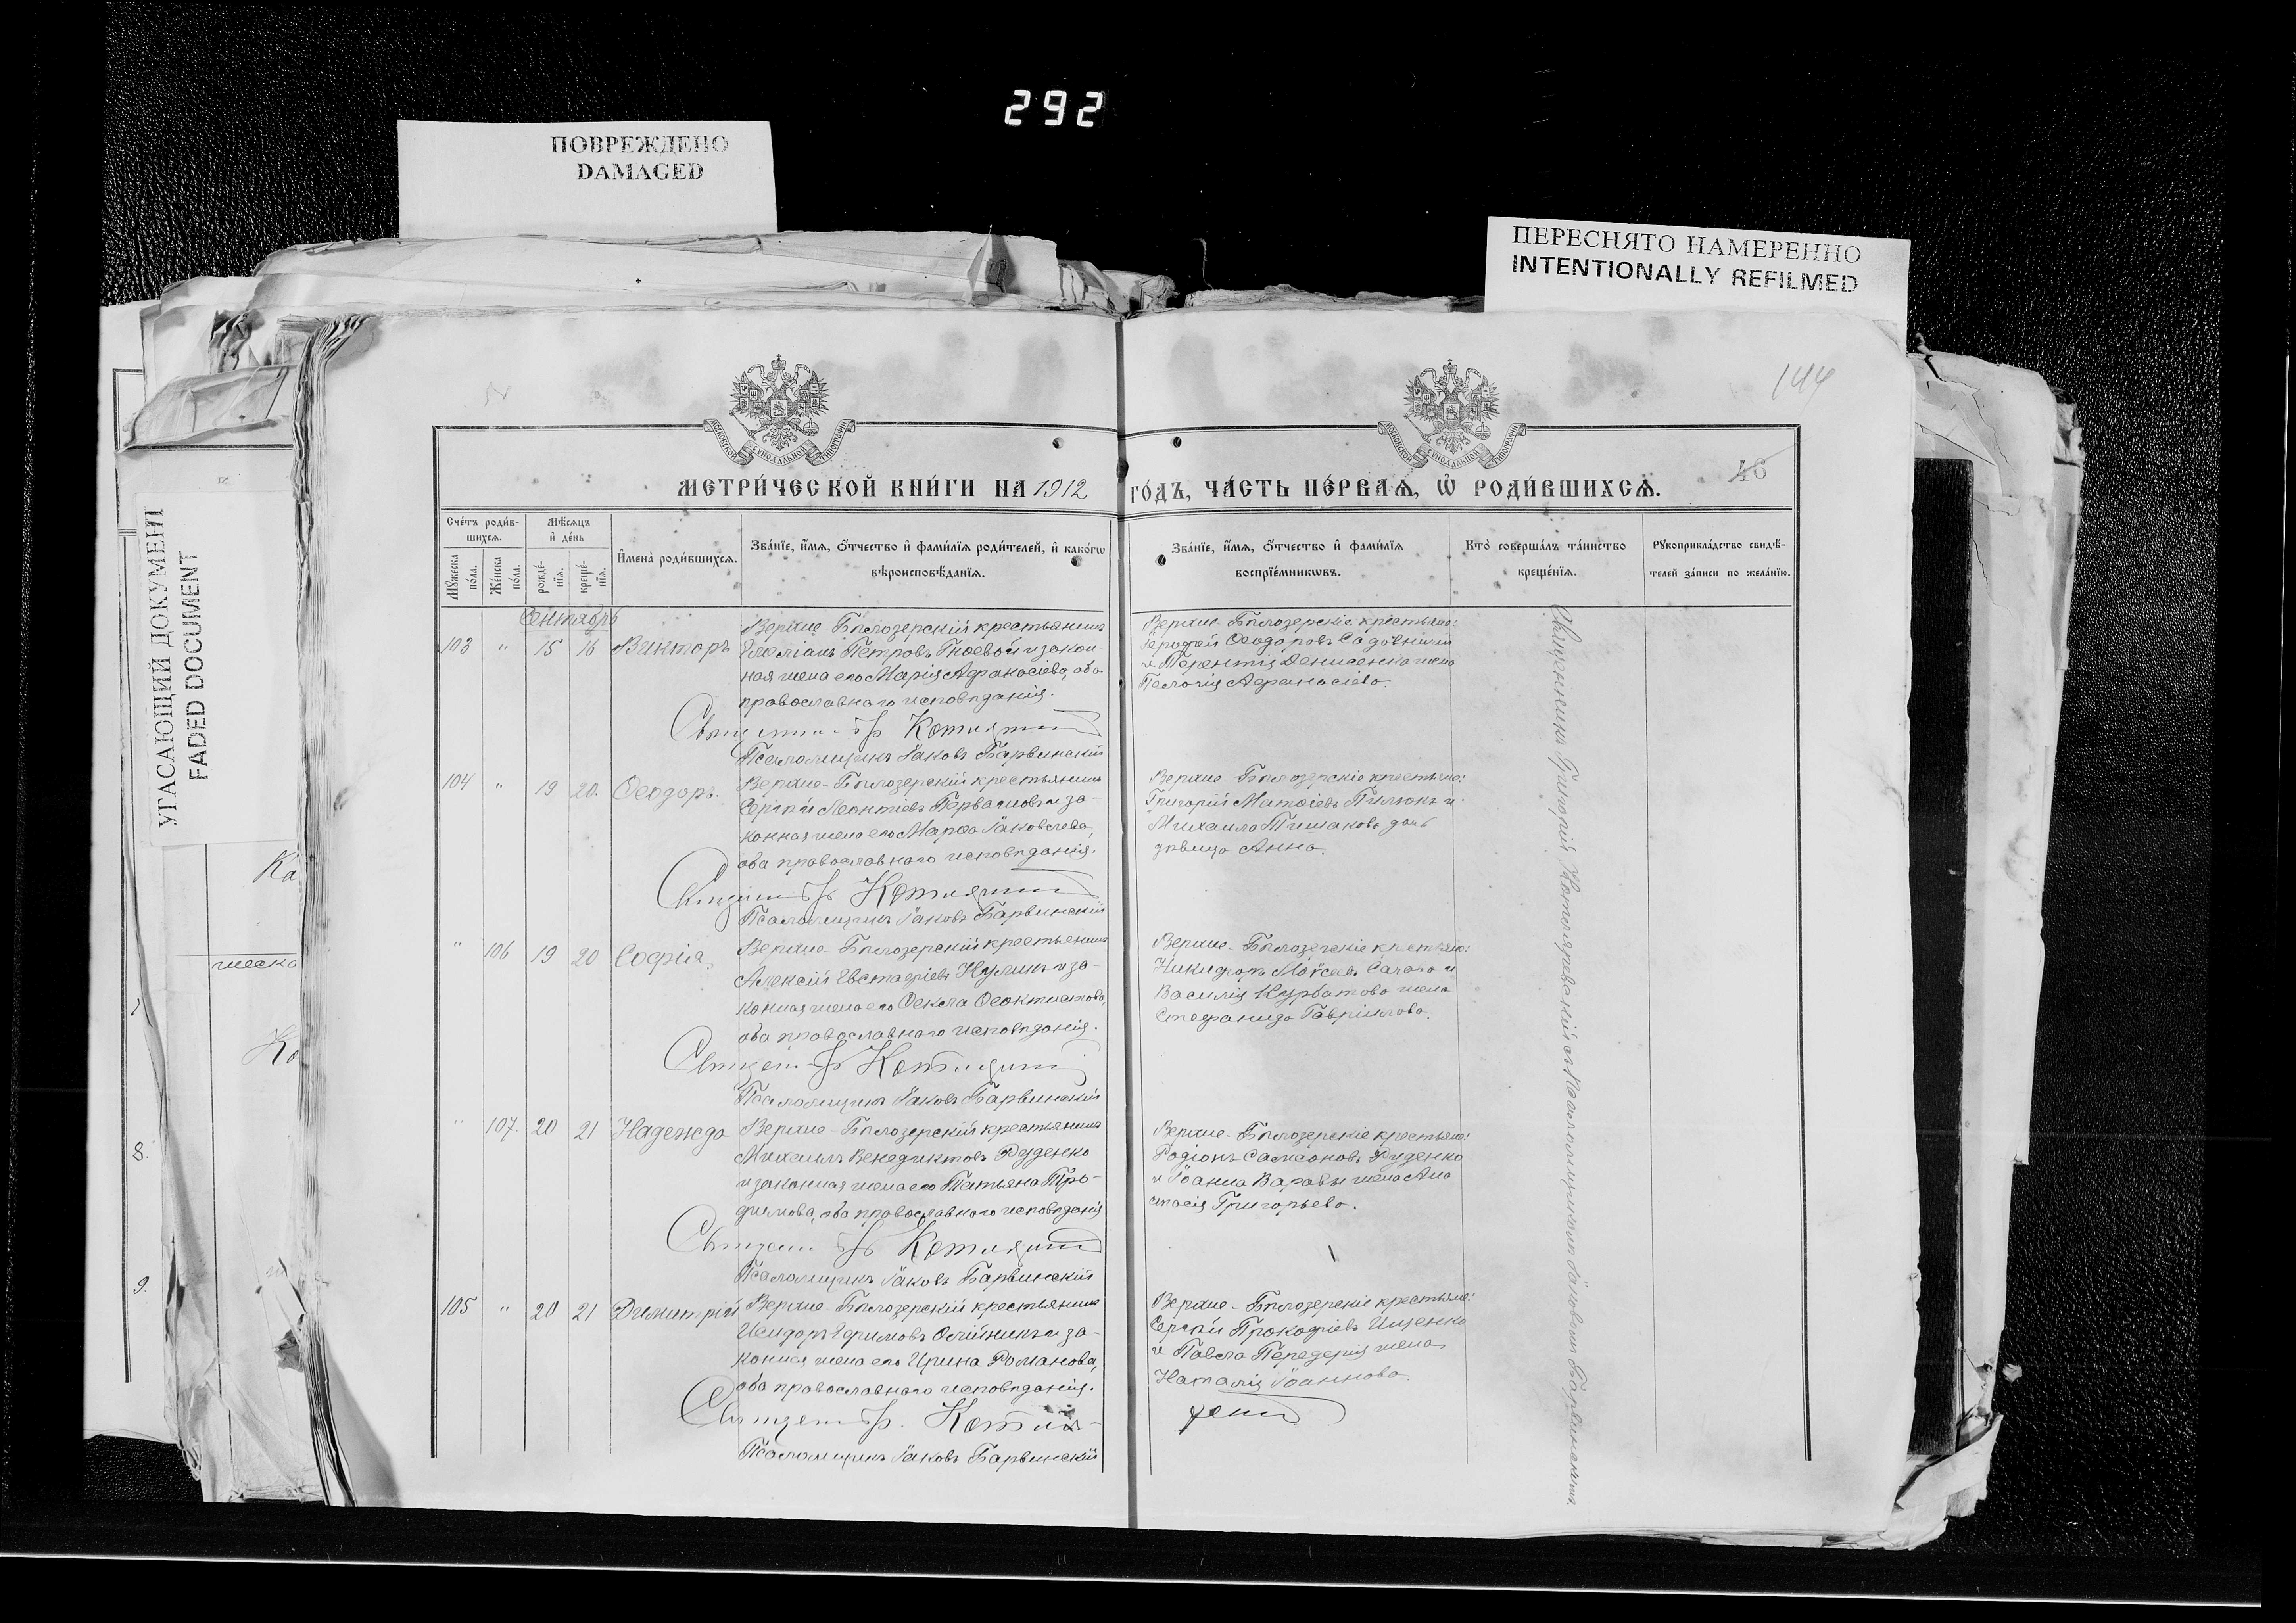 292
ПОВРЕЖДЕНО
DAMAGED
ПЕРЕСНЯТО НАМЕРЕННО
INTENTIONALLY REFILMED
УГАСАЮЩИЙ ДОКУМЕНТ
FADED DOCUMENT
144
46
МЕТРИ́ЧЕСКОЙ КНИ́ГИ НА 1912 ГО́ДЪ, ЧА́СТЬ ПЕ́РВАѦ, Ѡ҆ РОДИ́ВШИХСѦ.
Сче́тъ роди́в-
шихсѧ.
Мꙋ́жеска
по́ла.
Же́нска
по́ла.
Мѣ́сѧцъ
и҆ де́нь
рожде́-
нїѧ.
креще́-
нїѧ.
И҆мена̀ роди́вшихсѧ.
Зва́нїе, и҆́мѧ, ѻ҆́тчество и҆ фами́лїѧ роди́телей, и҆ како́гѡ
вѣроисповѣ́данїѧ.
Зва́нїе, и҆́мѧ, ѻ҆́тчество и҆ фами́лїѧ
воспрїе́мникѡвъ.
Кто̀ соверша́лъ та́инство
креще́нїѧ.
Рꙋкоприкла́дство свидѣ́-
телей за́писи по жела́нїю.
Сентябрь
103 " 15 16 Викторъ
Верхне-Бѣлозерскій крестьянинъ
Емеліанъ Петровъ Гноевой и закон-
ная жена его Марія Афанасіева, оба
православнаго исповѣданія.
Псаломщикъ Іаковъ Барвинскій
Верхне-Бѣлозерскіе крестьяне:
Ѳеодоровъ Садовничій
и Терентія Денисенка жена
Пелагія Афанасіева.
104 " 19 20. Ѳеодоръ.
Верхне-Бѣлозерскій крестьянинъ
Сергѣй Леонтіевъ Первашовъ и за-
конная жена его Марѳа Іаковлева,
оба православнаго исповѣданія.
Псаломщикъ Іаковъ Барвинскій
Верхне-Бѣлозерскіе крестьяне:
Григорій Матѳіевъ Пилюкъ и
Михаила Тишакова дочь
дѣвица Анна.
" 106 19 20 Софія.
Верхне-Бѣлозерскій крестьянинъ
Алексій Евстафіевъ Куликъ и за-
конная жена его Ѳекла Ѳеоктистова,
оба православнаго исповѣданія.
Псаломщикъ Іаковъ Барвинскій
Верхне-Бѣлозерскіе крестьяне:
Никифоръ Моѵсеевъ Сагачъ и
Василія Курбатова жена
Стефанида Гавріилова.
" 107. 20 21 Надежда
Верхне-Бѣлозерскій крестьянинъ
Михаилъ Венедиктовъ Руденко
и законная жена его Татьяна Тро-
фимова, оба православнаго исповѣданія
Псаломщикъ Іаковъ Барвинскій
Верхне-Бѣлозерскіе крестьяне:
Родіонъ Самсоновъ Руденко
и Іоанна Варавы жена Ана
стасія Григорьева.
105 " 20 21 Димитрій
Верхне-Бѣлозерскій крестьянинъ
Исидоръ Ефимовъ Олійникъ и за-
конная жена его Ирина Романова,
оба православнаго исповѣданія.
Псаломщикъ Іаковъ Барвинскій
Верхне-Бѣлозерскіе крестьяне:
Сергѣй Прокофіевъ Ищенко
и Павла Передерія жена
Наталія Іоаннова.
Священникъ Григорій Котляревскій съ псаломщикомъ Іаковомъ Барвинскимъ.
Ка
жеска
Ко
8.
9.